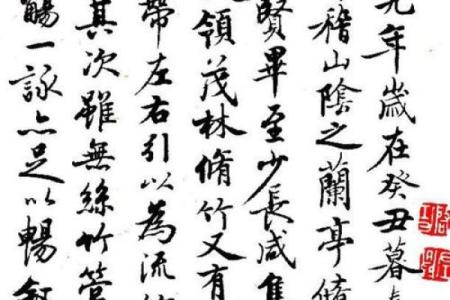 元年歲在癸丑暮
稽山陰之蘭亭脩
賢畢至少長咸集
領茂林脩竹又有
帶左右引以為流
其次雖無絲竹管
觴一詠亦足以暢敘